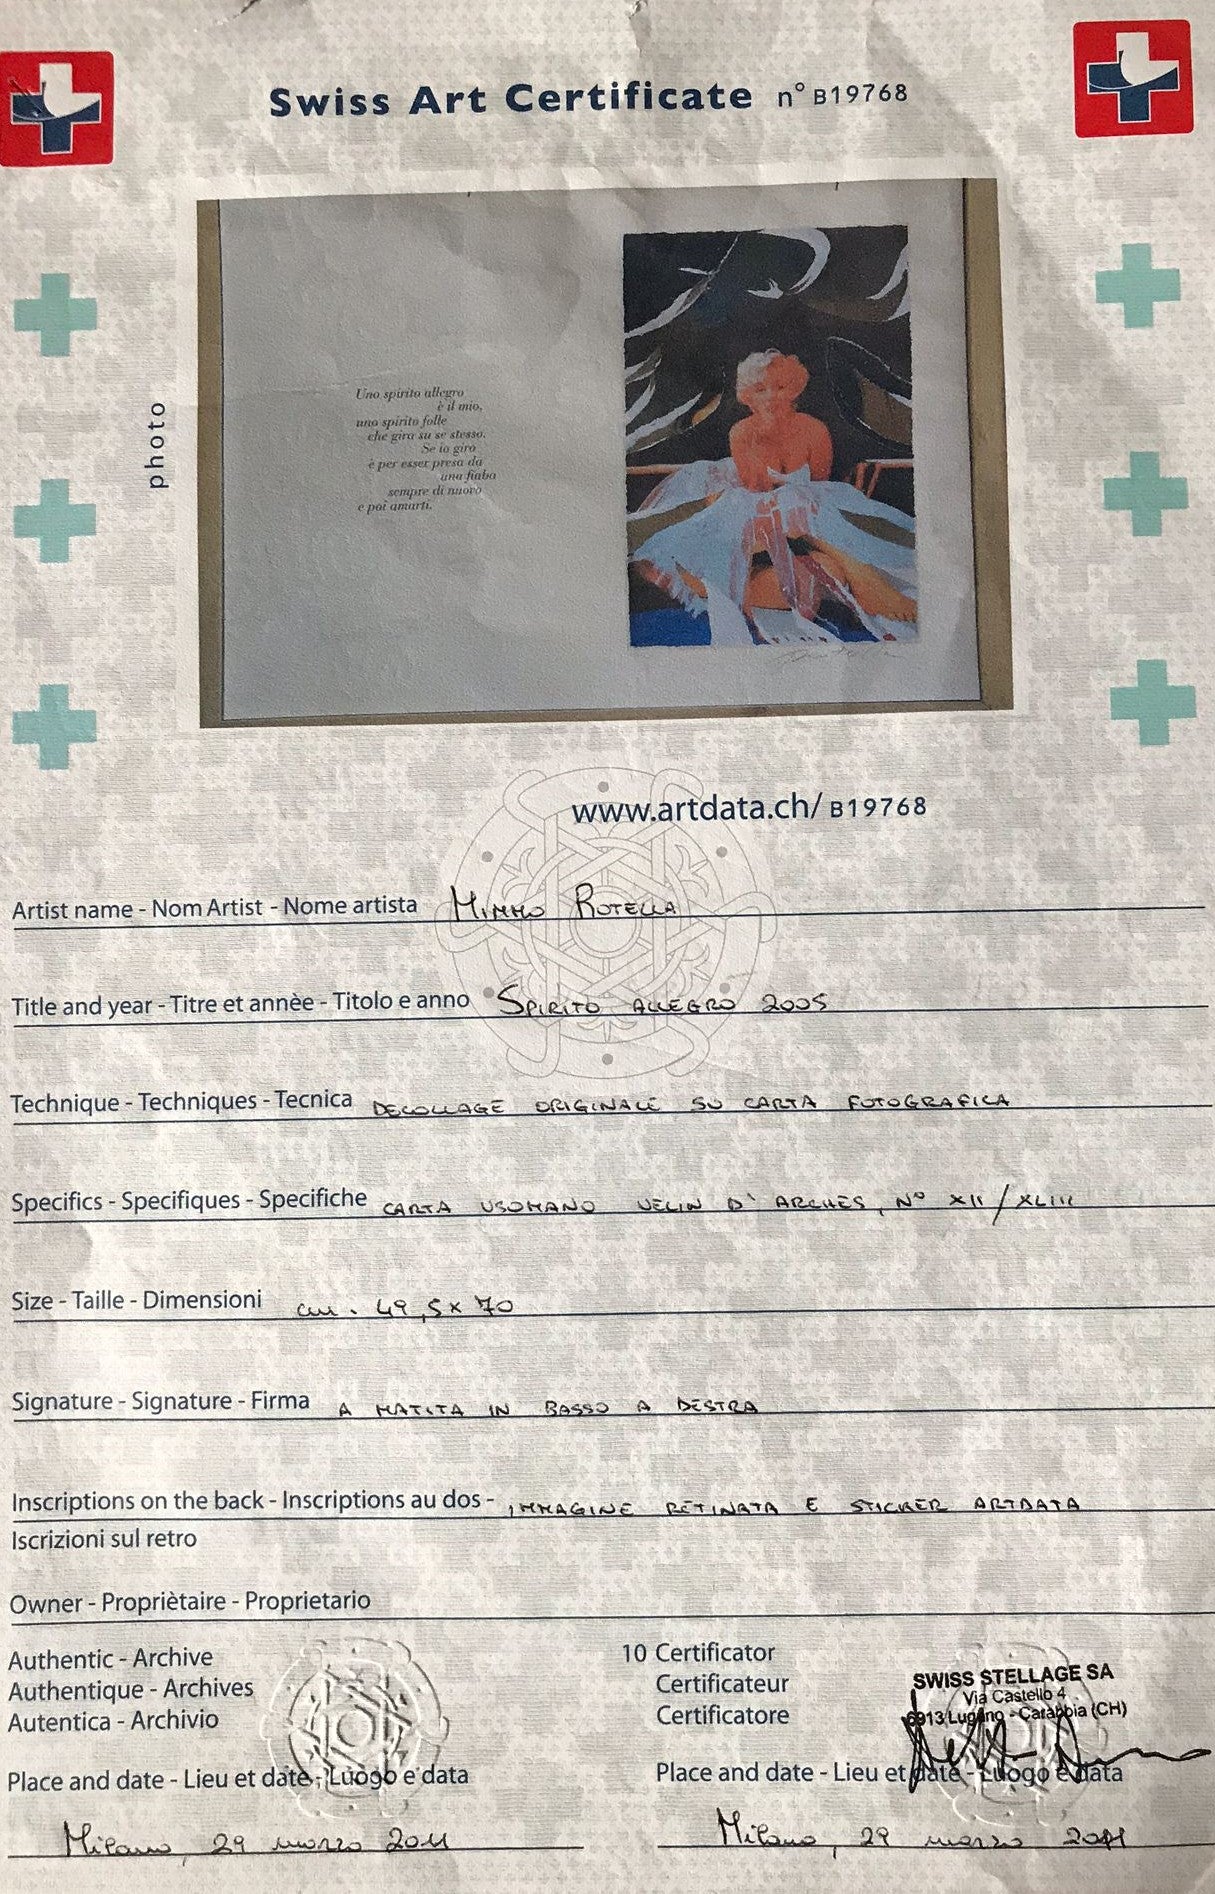 Swiss Art Certificate n° B19768
photo
Uno spirito allegro
è il mio,
uno spirito folle
che gira su se stesso.
Se io giro
è per esser presa da
una fiaba
sempre di nuovo
e poi amarti.
www.artdata.ch/ B19768
Artist name - Nom Artist - Nome artista MIMMO ROTELLA
Title and year - Titre et annèe - Titolo e anno SPIRITO ALLEGRO 2005
Technique - Techniques - Tecnica DECOLLAGE ORIGINALE SU CARTA FOTOGRAFICA
Specifics - Specifiques - Specifiche CARTA USOMANO VELIN D' ARCHES, N° XII/XLIII
Size - Taille - Dimensioni cm. 49,5 x 70
Signature - Signature - Firma A MATITA IN BASSO A DESTRA
Inscriptions on the back - Inscriptions au dos - IMMAGINE RETINATA E STICKER ARTDATA
Iscrizioni sul retro
Owner - Propriètaire - Proprietario
Authentic - Archive
Authentique - Archives
Autentica - Archivio
Place and date - Lieu et date - Luogo e data
Milano, 29 marzo 2011
10 Certificator
Certificateur
Certificatore
SWISS STELLAGE SA
Via Castello 4
6913 Lugano - Carabbia (CH)
Place and date - Lieu et date - Luogo e data
Milano, 29 marzo 2011